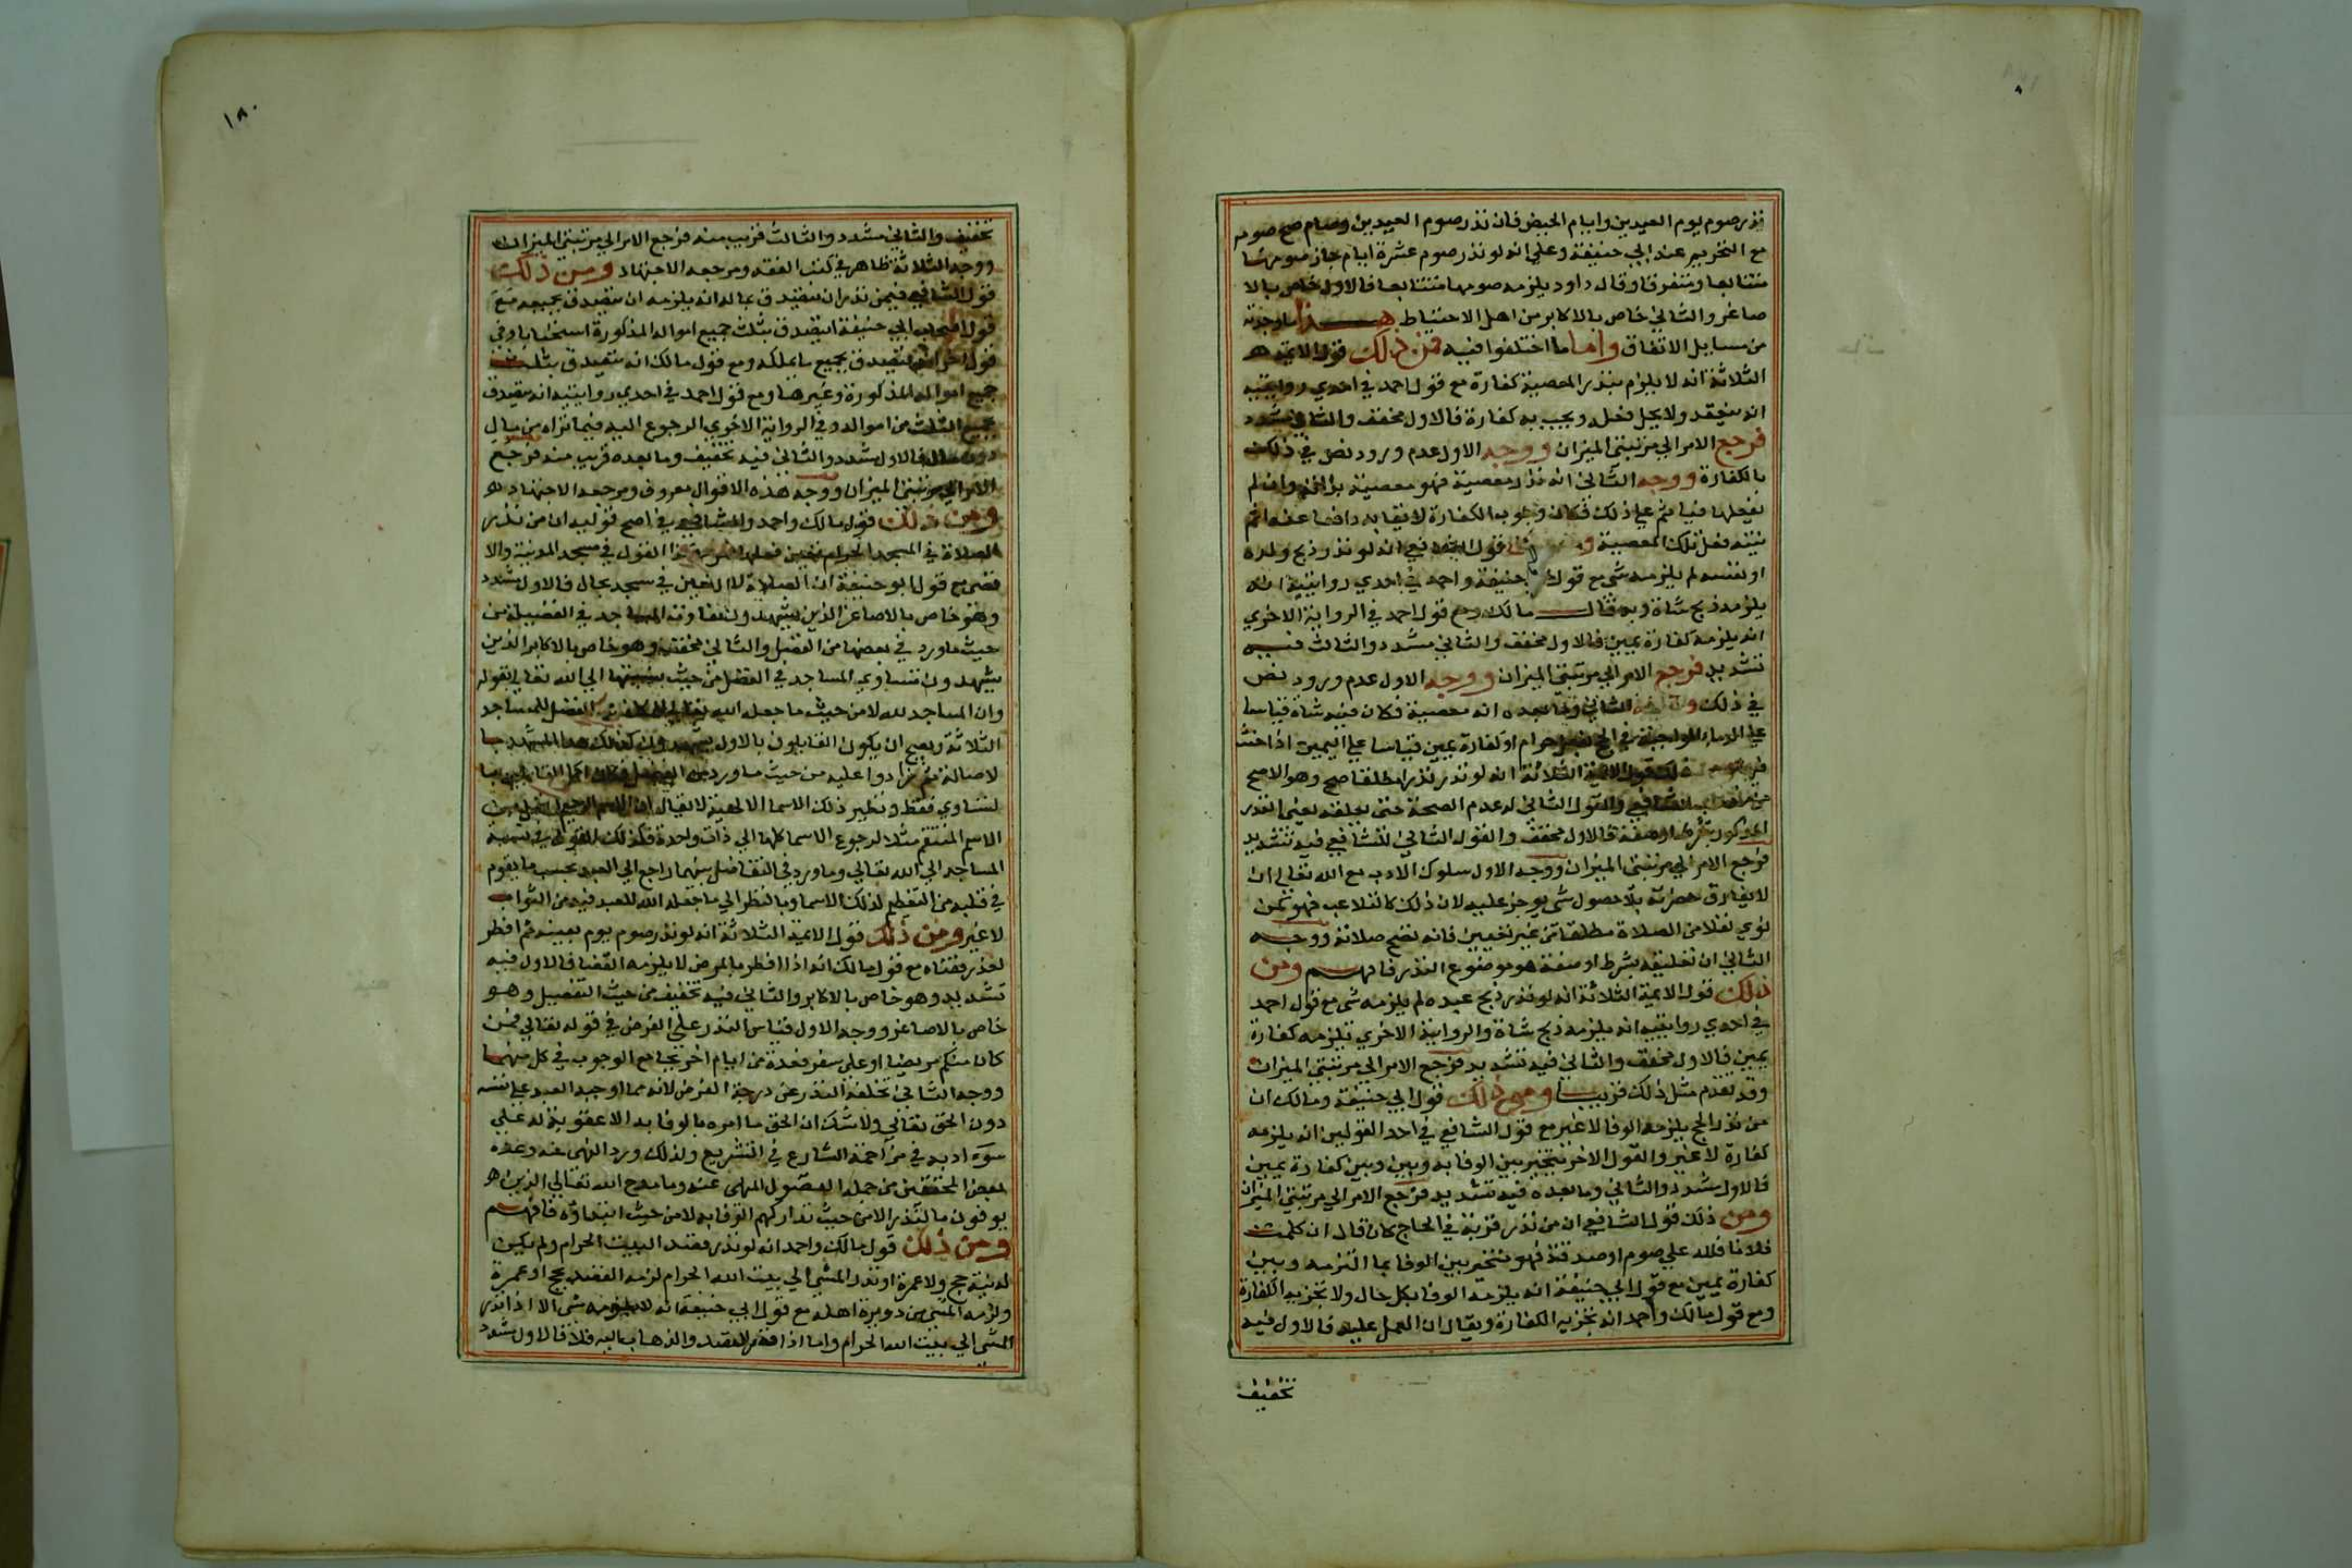 نذر صوم يوم العيدين وايام الحيض فان نذر صوم العيدين وصام صح صومه
مع التحريم عند ابي حنيفة وعلي انه لو نذر صوم عشرة ايام جاز صومها
متتابعا ومتفرقا وقال داود يلزمه صومها متتابعا فالاول خاص بالا
صاغر والثاني خاص بالاكابر من اهل الاحتياط هذا ما وجدته
من مسايل الاتفاق واما ما اختلفوا فيه فمن ذلك قول الايمة
الثلاثة انه لا يلزم بنذر المعصية كفارة مع قول احمد في احدي روايتيه
انه ينعقد ولا يحل فعله ويجب به كفارة فالاول مخفف والثاني مشدد
فرجع الامر الي مرتبتي الميزان ووجه الاول عدم ورود نص في ذلك
بالكفارة ووجه الثاني انه نذر معصية فهو معصية وان لم
يفعلها فياثم علي ذلك فكان وجوب الكفارة لايقا به دافعا عنه اثم
نيته فعل تلك المعصية قول الشافعي انه لو نذر ذبح ولده
او نفسه لم يلزمه شي مع قول حنيفة واحمد في احدي روايتيه انه
يلزمه ذبح شاة وبه قال مالك ومع قول احمد في الرواية الاخري
انه يلزمه كفارة يمين فالاول مخفف والثاني مشدد والثالث فيه
تشديد فرجع الامر الي مرتبتي الميزان ووجه الاول عدم ورود نص
في ذلك الثاني وما بعده انه معصية فكان فيه شاة قياسا
علي الدماء الواجبة في الحج او كفارة يمين قياسا علي اليمين اذا حنث
قول الايمة الثلاثة انه لو نذر نذرا مطلقا صح وهو الاصح
من الشافعي والقول الثاني له عدم الصحة حتى يعلقه يعني النذر
المذكور بشرط او صفة فالاول مخفف والقول الثاني للشافعي فيه تشديد
فرجع الامر الي مرتبتي الميزان ووجه الاول سلوك الادب مع الله تعالي ان
لا يفارق حضرته بلا حصول شي يوجر عليه لان ذلك كالتلاعب فهو كمن
نوي نفلا من الصلاة مطلقا من غير تعيين فانه تصح صلاته ووجه
الثاني ان تعليقه بشرط او صفة هو موضوع النذر فافهم ومن
ذلك قول الايمة الثلاثة انه لو نذر ذبح عبده لم يلزمه شي مع قول احمد
في احدي روايتيه انه يلزمه ذبح شاة والرواية الاخري تلزمه كفارة
يمين فالاول مخفف والثاني فيه تشديد فرجع الامر الي مرتبتي الميزان
وقد تقدم مثل ذلك قريبا ومن ذلك قول ابي حنيفة ومالك ان
من نذر الحج يلزمه الوفا لا غير مع قول الشافعي في احد القولين انه يلزمه
كفارة لا غير والقول الاخر يتخير بين الوفا به وبين وبين كفارة يمين
فالاول مشدد والثاني وما بعده فيه تشديد فرجع الامر الي مرتبتي الميزان
ومن ذلك قول الشافعي ان من نذر قربة في لحاج كان قال ان كلمت
فلانا فلله علي صوم او صدقة فهو يتخير بين الوفا بما التزمه وبين
كفارة يمين مع قول ابي حنيفة انه يلزمه الوفا بكل حال ولا تجزيه الكفارة
ومع قول مالك واحمد انه تجزيه الكفارة ويقال ان العمل عليه فالاول فيه
تخفيف
١٨٠
تخفيف والثاني مشدد والثالث قريب منه فرجع الامر الي مرتبتي الميزان
ووجه الثلاثة ظاهر في كتب الفقه ومرجعه الاجتهاد ومن ذلك
قول الشافعي فيمن نذر ان يتصدق بماله انه يلزمه ان يتصدق بجميعه مع
قول اصحاب ابي حنيفة انه يتصدق بثلث جميع امواله المذكورة استحبابا وفي
قول اخر انه يتصدق بجميع ما يملكه ومع قول مالك انه يتصدق بثلث
جميع امواله المذكورة وغيرها ومع قول احمد في احدي روايتيه انه يتصدق
بجميع الثلث من امواله وفي الرواية الاخري الرجوع اليه فيما نواه من مال
دون مال فالاول مشدد والثاني فيه تخفيف وما بعده قريب منه فرجع
الامر الي مرتبتي الميزان ووجه هذه الاقوال معروف ومرجعه الاجتهاد
ومن ذلك قول مالك واحمد والشافعي في اصح قوليه ان من نذر
الصلاة في المسجد الحرام تعين فعلها القول في مسجد المدينة والا
قصي مع قول ابو حنيفة ان الصلاة لا تتعين في مسجد بحال فالاول مشدد
وهو خاص بالاصاغر الذين يشهدون تفاوت المساجد في الفضيلة من
حيث ما ورد في بعضها من الفضل والثاني مخفف وهو خاص بالاكابر الذين
يشهدون تساوي المساجد في الفضل من حيث نسبتها الي الله تعالي بقوله
وان المساجد لله لا من حيث ما جعله الله الفضل للمساجد
الثلاثة ويصح ان يكون القايلون بالاول
لاصالة ثم زادوا عليه من حيث ما ورد من
لتساوي فقط ونظير ذلك الاسما الالهية لا يقال ان الاسم الرحيم افضل من
الاسم المنتقم مثلا لرجوع الاسما كلها الي ذات واحدة فكذلك القول في نسبة
المساجد الي الله تعالي وما ورد في التفاضل بينهما راجع الي العبد بحسب ما يقوم
في قلبه من التعظيم لذلك الاسما وبالنظر الي ما جعله الله للعبد فيه من الثواب
لا غير ومن ذلك قول الايمة الثلاثة انه لو نذر صوم يوم بعينه ثم افطر
لعذر قضاه مع قول مالك انه اذا افطر بالمرض لا يلزمه القضا فالاول فيه
تشديد وهو خاص بالاكابر والثاني فيه تخفيف من حيث التفصيل وهو
خاص بالاصاغر ووجه الاول قياس النذر علي الفرض في قوله تعالي فمن
كان منكم مريضا او علي سفر فعدة من ايام اخر بجامع الوجوب في كل منهما
ووجه الثاني تخلف النذر عن درجة الفرض لانه مما اوجبه العبد علي نفسه
دون الحق تعالي ولا شك ان الحق ما امره بالوفا به الا عقوبة له علي
سوء ادبه في مزاحمة الشارع في التشريع ولذلك ورد النهي عنه وعده
بعض المحققين من جملة الفضول المنهي عنه وما مدح الله تعالي الذين
يوفون بالنذر الا من حيث تداركهم الوفا به لا من حيث ابتداؤه فافهم
ومن ذلك قول مالك واحمد انه لو نذر قصد البيت الحرام ولم يكن
له نية حج ولا عمرة او نذر المشي الي بيت الله الحرام لزمه القصد بحج او عمرة
ولزمه المشي من دويرة اهله مع قول ابي حنيفة انه لا يلزمه شي الا اذا نذر
المشي الي بيت الله الحرام واما اذا نذر القصد والذهاب اليه فلا فالاول مشدد